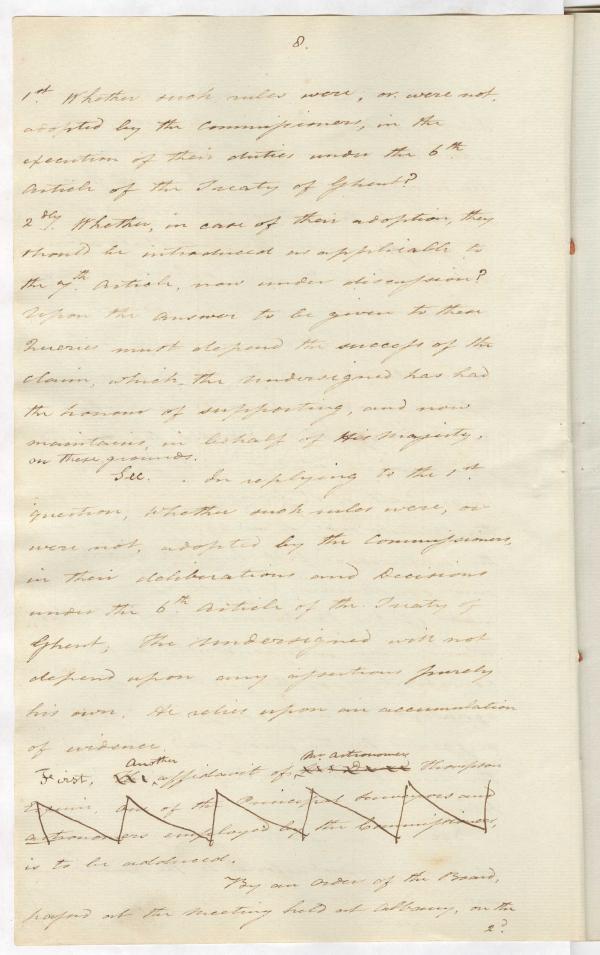 8.
1st. Whether such rules were, or were not,
adopted by the Commissioners, in the
execution of their duties under the 6th
Article of the Treaty of Ghent?
2dly. Whether, in case of their adoption, they
should be introduced as applicable to
the 7th. Article, now under discussion?
Upon the answer to be given to these
Queries must depend the success of the
claim, which the undersigned has had
the honour of supporting, and now
maintains, in behalf of His Majesty,
on these grounds.
Sec. . In replying to the 1st
question, Whether such rules were, or
were not, adopted by the Commissioners,
in their deliberations and Decisions
under the 6th Article of the Treaty of
Ghent, the undersigned will not
depend upon any assertions purely
his own. He relies upon an accumulation
of evidence.
Another Mr. Astronomer
First, affidavit of Thompson
one of the Principal Surveyors and
astronomers employed by the Commissioners,
is to be adduced.
By an order of the Board,
passed at the meeting held at Albany, on the
2d